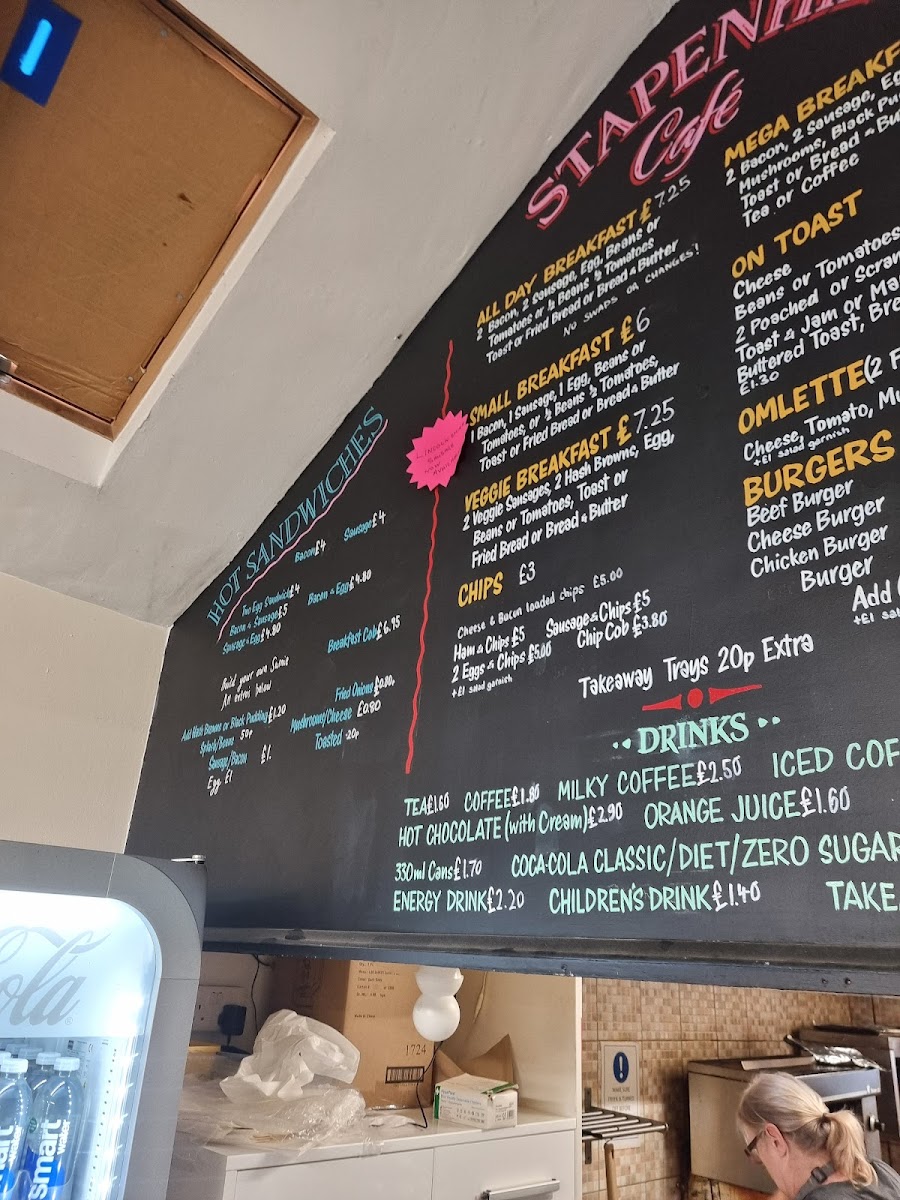 STAPENHI
Café
HOT SANDWICHES
Bacon £4
Sausage £4
Two Egg Sandwich £4
Bacon & Egg £4.80
Bacon & Sausage £5
Sausage & Egg £4.80
Breakfast Cob £6.95
Build your own Sarnie
An extras below
Add Hash Browns or Black Pudding £1.20
Fried Onions £0.80p
Mushrooms/Cheese £0.80
Toasted 20p
Beans 50p
Sausage/Bacon £1.
Egg £1
ALL DAY BREAKFAST £7.25
2 Bacon, 2 Sausage, Egg, Beans or
Tomatoes or ½ Beans ½ Tomatoes
Toast or Fried Bread or Bread & Butter
NO SWAPS OR CHANGES!
SMALL BREAKFAST £6
1 Bacon, 1 Sausage, 1 Egg, Beans or
Tomatoes, or ½ Beans ½ Tomatoes,
Toast or Fried Bread or Bread & Butter
VEGGIE BREAKFAST £7.25
2 Veggie Sausages, 2 Hash Browns, Egg,
Beans or Tomatoes, Toast or
Fried Bread or Bread & Butter
CHIPS £3
Cheese & Bacon loaded chips £5.00
Ham & Chips £5
Sausage & Chips £5
2 Eggs & Chips £5.00
Chip Cob £3.80
+£1 salad garnish
Takeaway Trays 20p Extra
MEGA BREAKF
2 Bacon, 2 Sausage, Eg
Mushrooms, Black Pu
Toast or Bread & Bu
Tea or Coffee
ON TOAST
Cheese
Beans or Tomatoes
2 Poached or Scram
Toast & Jam or Ma
Buttered Toast, Bre
£1.30
OMLETTE (2 F
Cheese, Tomato, Mu
+£1 salad garnish
BURGERS
Beef Burger
Cheese Burger
Chicken Burger
Burger
Add
+£1 sal
DRINKS
TEA £1.60 COFFEE £1.80 MILKY COFFEE £2.50 ICED COF
HOT CHOCOLATE (with Cream) £2.90 ORANGE JUICE £1.60
330ml Cans £1.70 COCA-COLA CLASSIC/DIET/ZERO SUGAR
ENERGY DRINK £2.20 CHILDREN'S DRINK £1.40 TAKE
ola
smart
water
smart
1724